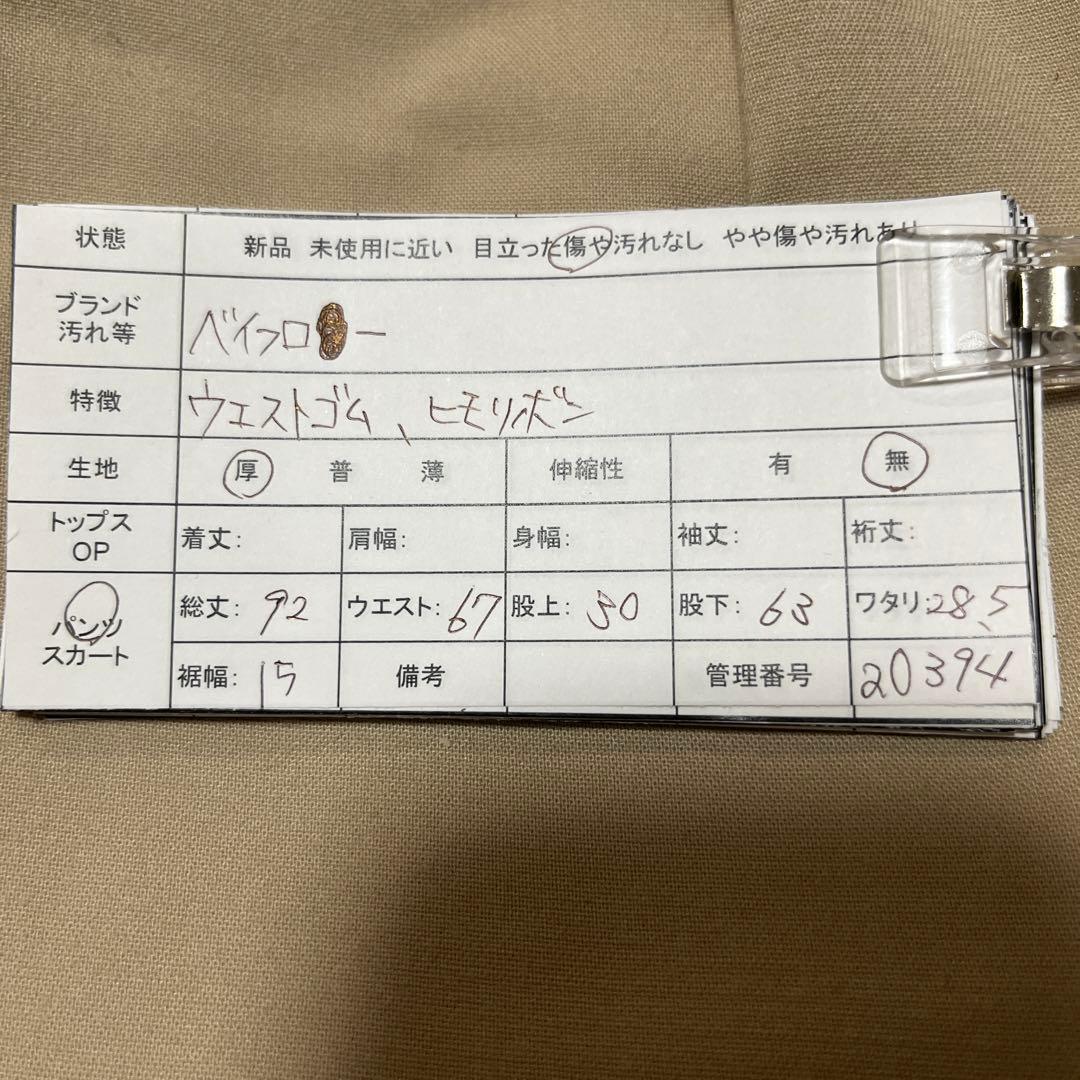 状態 新品 未使用に近い 目立った傷や汚れなし やや傷や汚れあり
ブランド
汚れ等
ベイフロー
特徴 ウエストゴム、ヒモリボン
生地 厚 普 薄 伸縮性 有 無
トップス
OP
着丈: 肩幅: 身幅: 袖丈: 裄丈:
パンツ
スカート
総丈: 92 ウエスト: 67 股上: 30 股下: 63 ワタリ: 28.5
裾幅: 15 備考 管理番号 20394